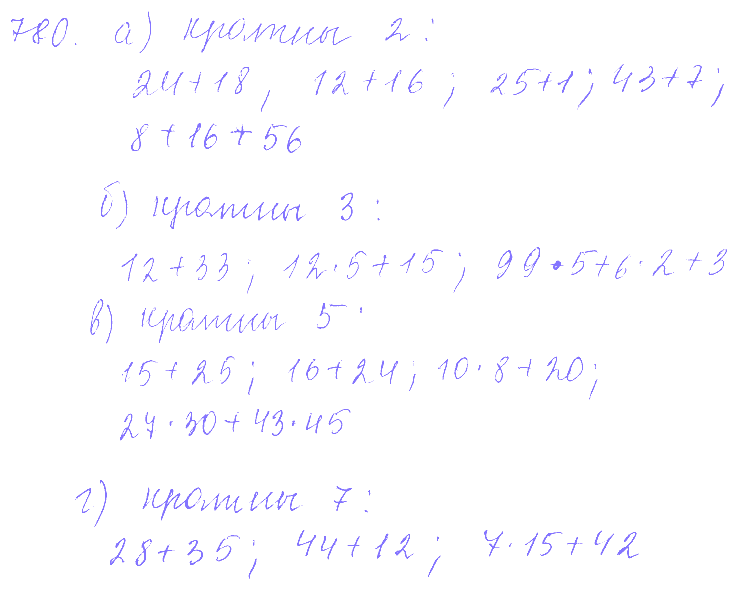 780. а) кратны 2:
24+18, 12+16; 25+1; 43+7;
8+16+56
б) кратны 3:
12+33; 12·5+15; 99·5+6·2+3
в) кратны 5:
15+25; 16+24; 10·8+20;
27·30+43·45
г) кратны 7:
28+35; 44+12; 7·15+42